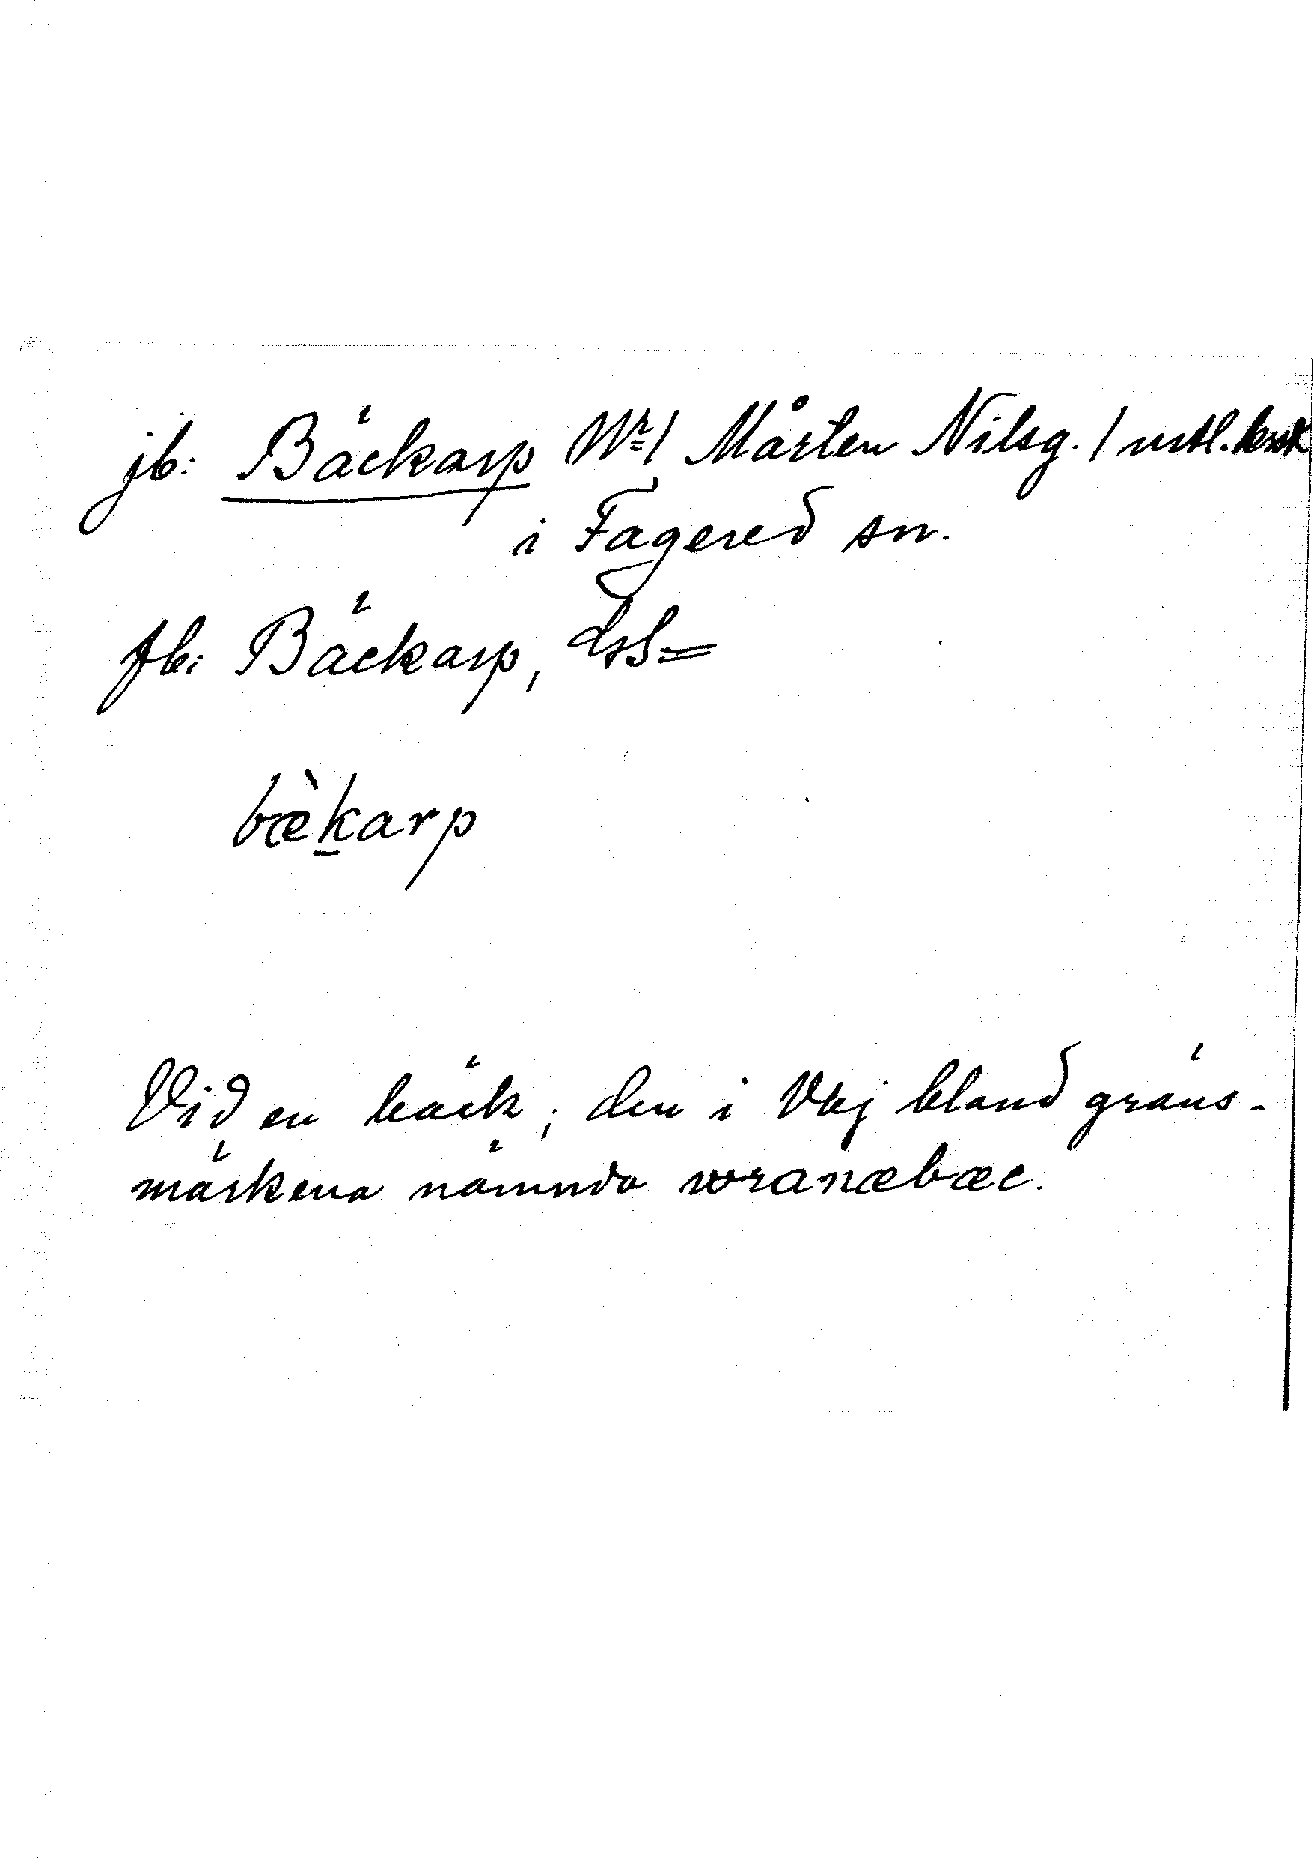 jb: Bäckarp Nr 1 Mårten Nilsg. 1 mtl. krsk
i Fagered sn.
fb: Bäckarp,
bæ̀karp
Vid en bäck; den i Vgj bland gräns-
märkena nämnda wranæbæc.